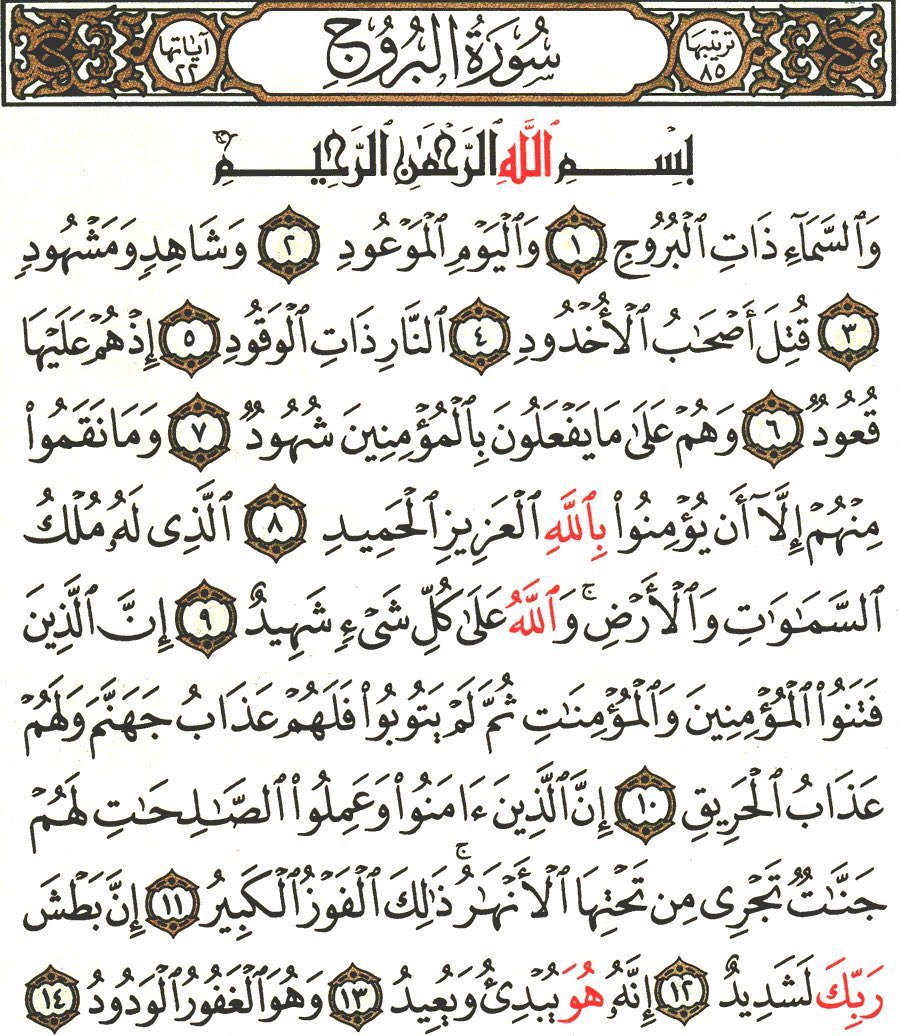 ترتيبها ٨٥ سُورَةُ البُرُوجِ آياتها ٢٢
بِسْمِ ٱللَّهِ ٱلرَّحْمَٰنِ ٱلرَّحِيمِ
وَٱلسَّمَآءِ ذَاتِ ٱلْبُرُوجِ ١ وَٱلْيَوْمِ ٱلْمَوْعُودِ ٢ وَشَاهِدٍ وَمَشْهُودٍ
٣ قُتِلَ أَصْحَٰبُ ٱلْأُخْدُودِ ٤ ٱلنَّارِ ذَاتِ ٱلْوَقُودِ ٥ إِذْ هُمْ عَلَيْهَا
قُعُودٌ ٦ وَهُمْ عَلَىٰ مَا يَفْعَلُونَ بِٱلْمُؤْمِنِينَ شُهُودٌ ٧ وَمَا نَقَمُوا۟
مِنْهُمْ إِلَّآ أَن يُؤْمِنُوا۟ بِٱللَّهِ ٱلْعَزِيزِ ٱلْحَمِيدِ ٨ ٱلَّذِى لَهُۥ مُلْكُ
ٱلسَّمَٰوَٰتِ وَٱلْأَرْضِ ۚ وَٱللَّهُ عَلَىٰ كُلِّ شَىْءٍ شَهِيدٌ ٩ إِنَّ ٱلَّذِينَ
فَتَنُوا۟ ٱلْمُؤْمِنِينَ وَٱلْمُؤْمِنَٰتِ ثُمَّ لَمْ يَتُوبُوا۟ فَلَهُمْ عَذَابُ جَهَنَّمَ وَلَهُمْ
عَذَابُ ٱلْحَرِيقِ ١٠ إِنَّ ٱلَّذِينَ ءَامَنُوا۟ وَعَمِلُوا۟ ٱلصَّٰلِحَٰتِ لَهُمْ
جَنَّٰتٌ تَجْرِى مِن تَحْتِهَا ٱلْأَنْهَٰرُ ۚ ذَٰلِكَ ٱلْفَوْزُ ٱلْكَبِيرُ ١١ إِنَّ بَطْشَ
رَبِّكَ لَشَدِيدٌ ١٢ إِنَّهُۥ هُوَ يُبْدِئُ وَيُعِيدُ ١٣ وَهُوَ ٱلْغَفُورُ ٱلْوَدُودُ ١٤